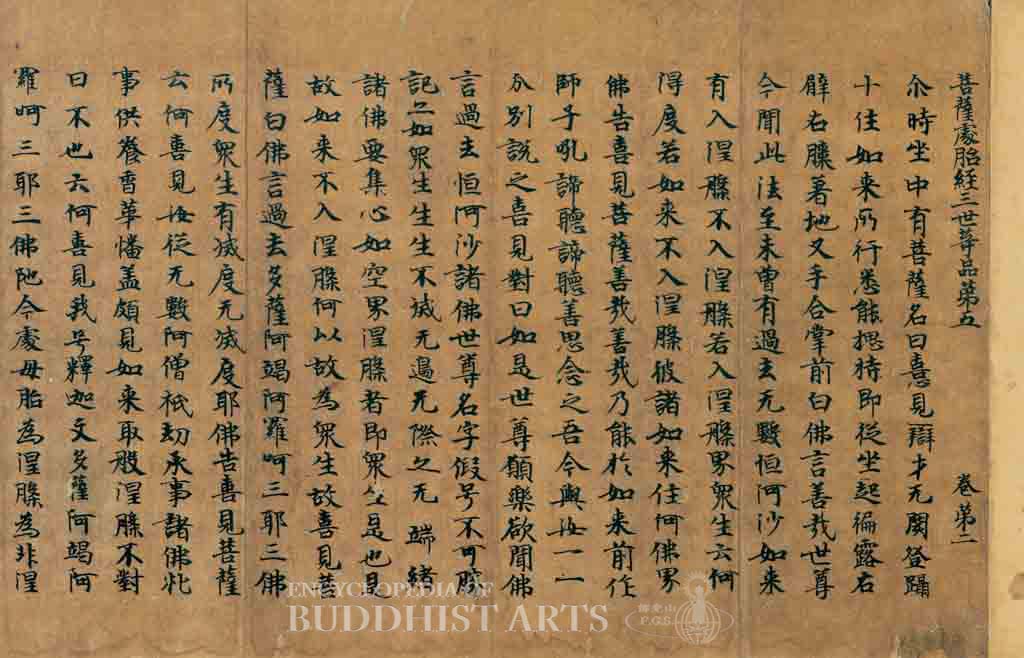 菩薩處胎經三世等品第五 卷第二
尒時坐中有菩薩名曰憙見辯才无閡登躡
十住如来所行悉能揔持即從坐起徧露右
臂右膝著地叉手合掌前白佛言善哉世尊
今聞此法至未曾有過去无數恒河沙如来
有入涅槃不入涅槃若入涅槃界衆生云何
得度若如来不入涅槃彼諸如来住何佛界
佛告喜見菩薩善哉善哉乃能於如来前作
師子吼諦聽諦聽善思念之吾今與汝一一
分別說之喜見對曰如是世尊願樂欲聞佛
言過去恒河沙諸佛世尊名字假号不可
記上如衆生生生不滅无邊无際之无端緒
諸佛要集心如空界涅槃者即衆生是也是
故如来不入涅槃何以故為衆生故喜見菩
薩白佛言過去多薩阿竭阿羅呵三耶三佛
所度衆生有滅度无滅度耶佛告喜見菩薩
云何喜見汝從无數阿僧祇劫承事諸佛
事供養香華幡盖頗見如来取般涅槃不對
曰不也云何喜見我号釋迦文多薩阿竭阿
羅呵三耶三佛陁今處母胎為涅槃為非涅
ENCYCLOPEDIA OF
BUDDHIST ARTS
佛光山
F.G.S.